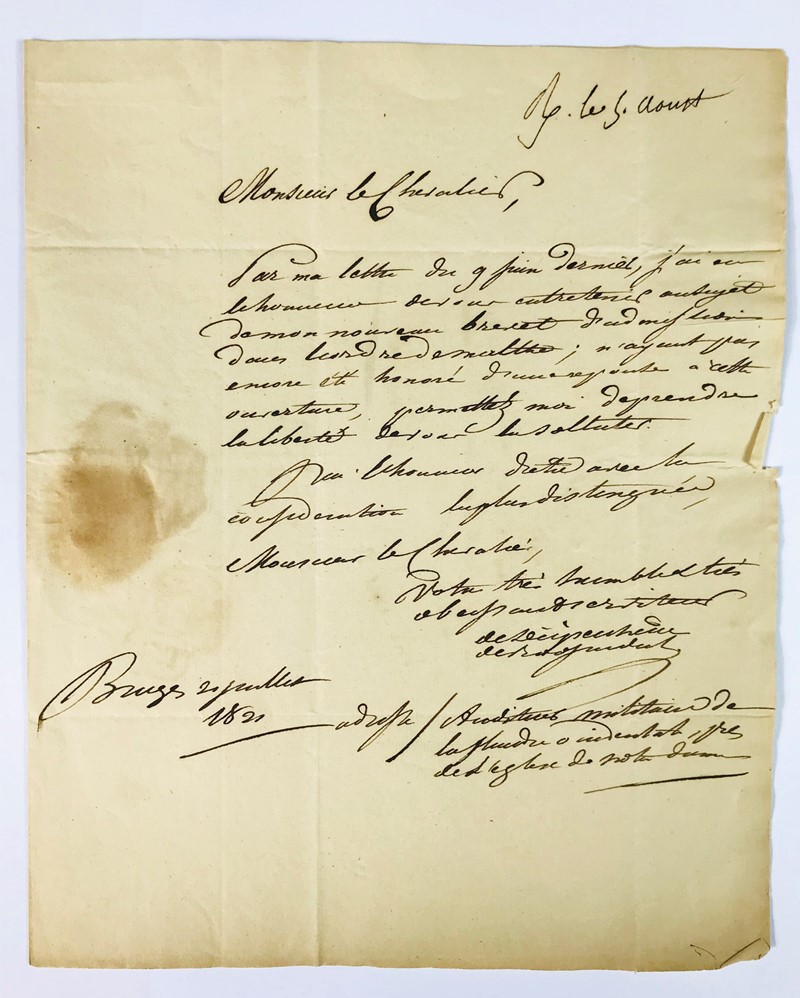 R. le 5. Aoust
Monsieur le Chevalier,
Par ma lettre du 9 juin dernier, j'ai eu
lehonneur devous entretenir ausujet
demon nouveau brevet d'admission
dans lordredemalthe; n'ayant pas
encore été honoré d'une reponse a cette
ouverture, permettez moi deprendre
laliberté devous la solliciter.
J'ai lhonneur d'etre avec la
consideration laplusdistinguée,
Monsieur le Chevalier,
Votre très humble & très
obeissant serviteur
Bruges juillet
1821
adresse / Auditeur militaire de
la flandre occidentale, près
de l'eglise de notre dame